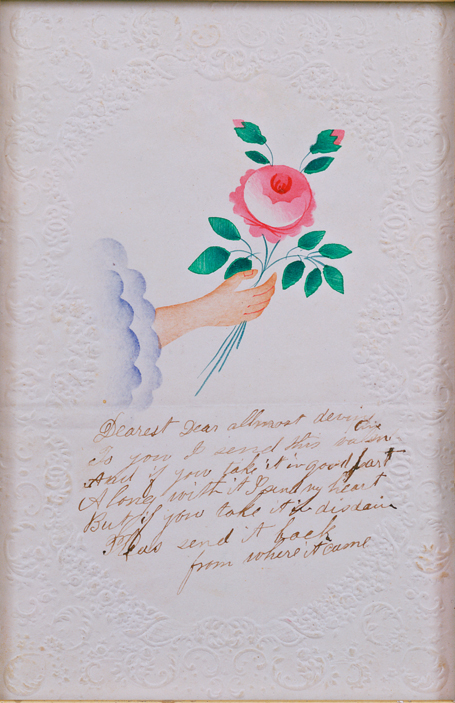 Dearest Dear allmost devine
To you I send this
And if you take it in good part
Along with it I send my heart
But if you take it in disdain
Pleas send it back
from where it came